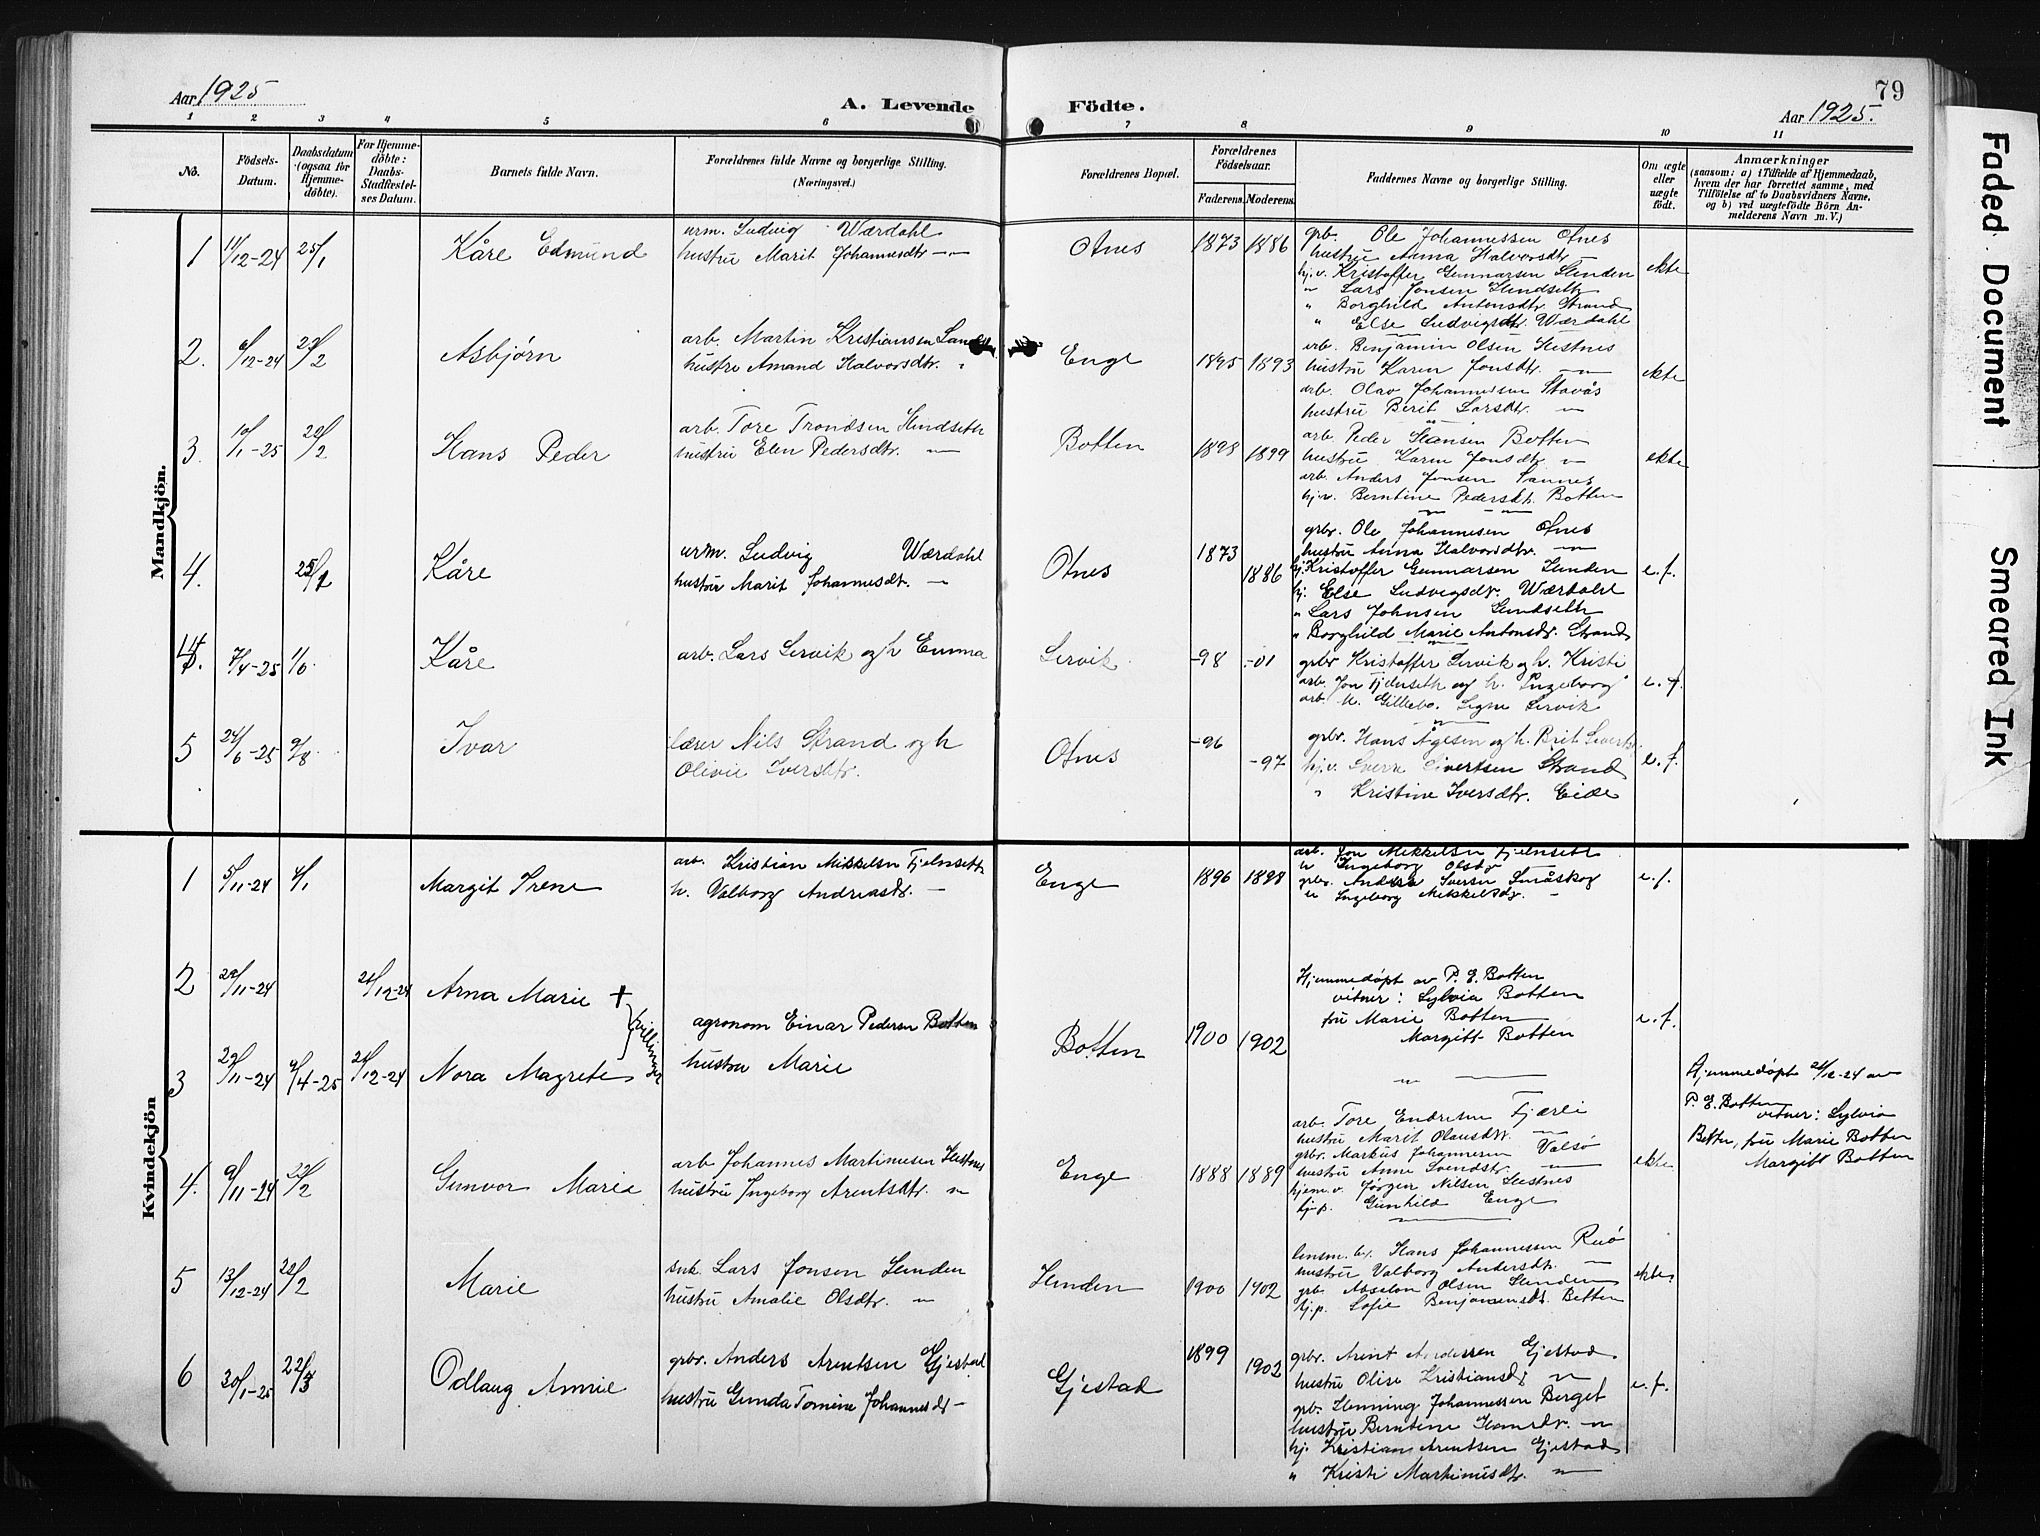 79
Aar 1925
A. Levende Födte.
Aar 1925.
1 2 3 4 5 6 7 8 9 10 11
No.
Födsels-
Datum.
Daabsdatum
(ogsaa för
Hjemme-
döbte).
For Hjemme-
döbte:
Daabs-
Stadfæstel-
ses Datum.
Barnets fulde Navn.
Forældrenes fulde Navne og borgerlige Stilling.
(Næringsvei.)
Forældrenes Bopæl.
Forældrenes
Födselsaar.
Faderens. Moderens.
Faddernes Navne og borgerlige Stilling.
Om ægte
eller
uægte
født.
Anmærkninger
(saasom: a) i Tilfælde af Hjemmedaab,
hvem der har forrettet samme, med
Tilföielse af to Daabsvidners Navne,
og b) ved uægtefödte Börn An-
melderens Navn m.V.)
Mandkjön.
1 11/12-24 25/1 Kåre Edmund
urm. Ludvig Wærdahl
hustru Marit Johannesdtr -"-
Otnes 1873 1886
grb. Ole Johannessen Otnes
hustru Anna Halvorsdtr —
hj.v. Kristoffer Gunnarsen Henden
" Lars Jonsen Hendseth
" Borghild Antonsdtr. Strand
" Else Ludvigsdtr. Wærdahl
ekte
2. 6/12-24 22/2 Asbjørn
arb. Martin Kristiansen
hustru Amand Halvorsdtr. "
Enge 1895 1893
arb. Benjamin Olsen Hestnes
hustru Karen Jonsdtr. —"—
arb. Olav Johannessen Stavås
hustru Berit Larsdtr. —"—
ekte
3. 10/1-25 22/2 Hans Peder
arb. Tore Trondsen Hendseth
hustru Elen Pedersdtr. —"—
Botten 1898 1899
arb. Peder Hansen Botten
hustru Karen Jonsdtr. —"—
arb. Anders Jonsen Sannes
hj.v. Berntine Pedersdtr. Botten
ekte
4. 25/1 Kåre
urm. Ludvig Wærdahl
hustru Marit Johannesdt. —"—
Otnes 1873 1886
grbr. Ole Johannesen Otnes
hustru Anna Halvorsdtr. —"—
hj. Kristoffer Gunnarsen Henden
hj. Else Ludvigsdtr. Wærdahl
" Lars Johnsen Hendseth
" Borghild Marie Antonsdtr. Strand
e.f.
4. 7/4-25 1/6. Kåre
arb. Lars Servik og h Emma
Servik. -98 -01
grbr Kristoffer Servik og h. Kristi
arb. Jon Fjelnseth og h. Ingeborg
arb. M. Gillebo. Signe Servik
e.f.
5 24/6-25 9/8. Ivar
lærer Nils Strand og h
Olivie Iversdtr.
Otnes -96 -97
grbr. Hans Ågesen og h. Brit Sivertsd.
hj.v. Sverre Sivertsen Strand
" Kristine Iversdtr. Eide
e.f.
Kvindekjön
1 5/11-24 4/1 Margit Irene
arb. Kristian Mikkelsen Fjelnseth
h. Valborg Andreasdtr. —
Enge 1896 1898
arb. Jon Mikkelsen Fjelnseth
h Ingeborg Olsdtr
grbr. Anders Iversen Småskog
h Ingeborg Mikkelsdtr. —
e.f.
2 29/11-24 21/12-24 Arna Marie + tvillinger
3 29/11-24 9/4-25 21/12-24 Nora Magrete
agronom Einar Pedersen Botten
hustru Marie
Botten 1900 1902
Hjemmedøpt av P. E. Botten
vitner: Sylvia Botten
fru Marie Botten
Margitt Botten
e.f.
—"—
Hjemmedøpt 21/12-24 av
P. E. Botten
vitner: Sylvia
Botten, fru Marie Botten
Margitt Botten
4. 9/11-24 22/2 Gunvor Marie
arb Johannes Martinusen Hestnes
hustru Ingeborg Arentsdtr. —"—
Enge 1888 1889
arb. Tore Endresen Fjærli
hustru Marit Olausdtr. —"—
grbr. Markus Johannesen Valsø
hustru Anne Svendsdtr. —"—
hjem.v. Jørgen Nilsen Hestnes
hj.p. Gunhild Enge
ekte
5 13/12-24 22/2 Marie
snk. Lars Jonsen Henden
hustru Amalie Olsdtr. —"—
Henden 1900 1902
lensm. b. Hans Johannessen Ruø
hustru Valborg Andersdtr. —"—
grb. Absalon Olsen Henden
hj.p. Sofie Benjaminsdtr. Botten
ekte
6 30/1-25 22/3 Odlaug Annie
grbr. Anders Arentsen Gjestad
hustru Gunda Tomine Johannesdtr —
Gjestad 1899 1902
grbr. Arent Andersen Gjestad
hustru Olise Kristiansdtr —"—
grb. Henning Johannessen Berget
hustru Berntine Hansdtr. —"—
hj. Kristian Arentsen Gjestad
" Kristi Martinusdtr. —"—
e.f.
Faded Document
Smeared Ink